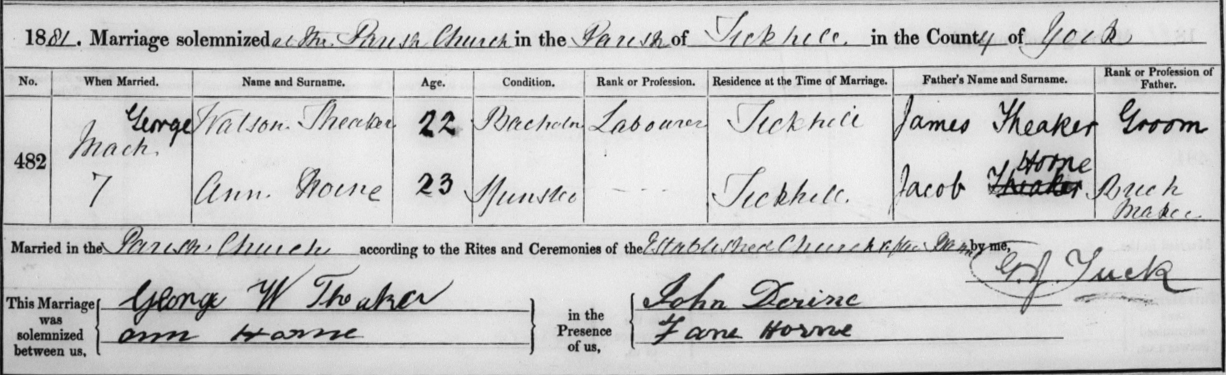 1881. Marriage solemnized at the Parish Church in the Parish of Tickhill. in the County of York
No. When Married. Name and Surname. Age. Condition. Rank or Profession. Residence at the Time of Marriage. Father's Name and Surname. Rank or Profession of Father.
482 Mach 7 George Watson Theaker 22 Bachelor Labourer Tickhill James Theaker Groom
Ann Horne 23 Spinster Tickhill. Jacob Theaker Horne Brick Maker
Married in the Parish Church according to the Rites and Ceremonies of the Established Church by me,
This Marriage was solemnized between us, George W Theaker in the Presence of us, John
Ann Horne Jane Horne
Tuck